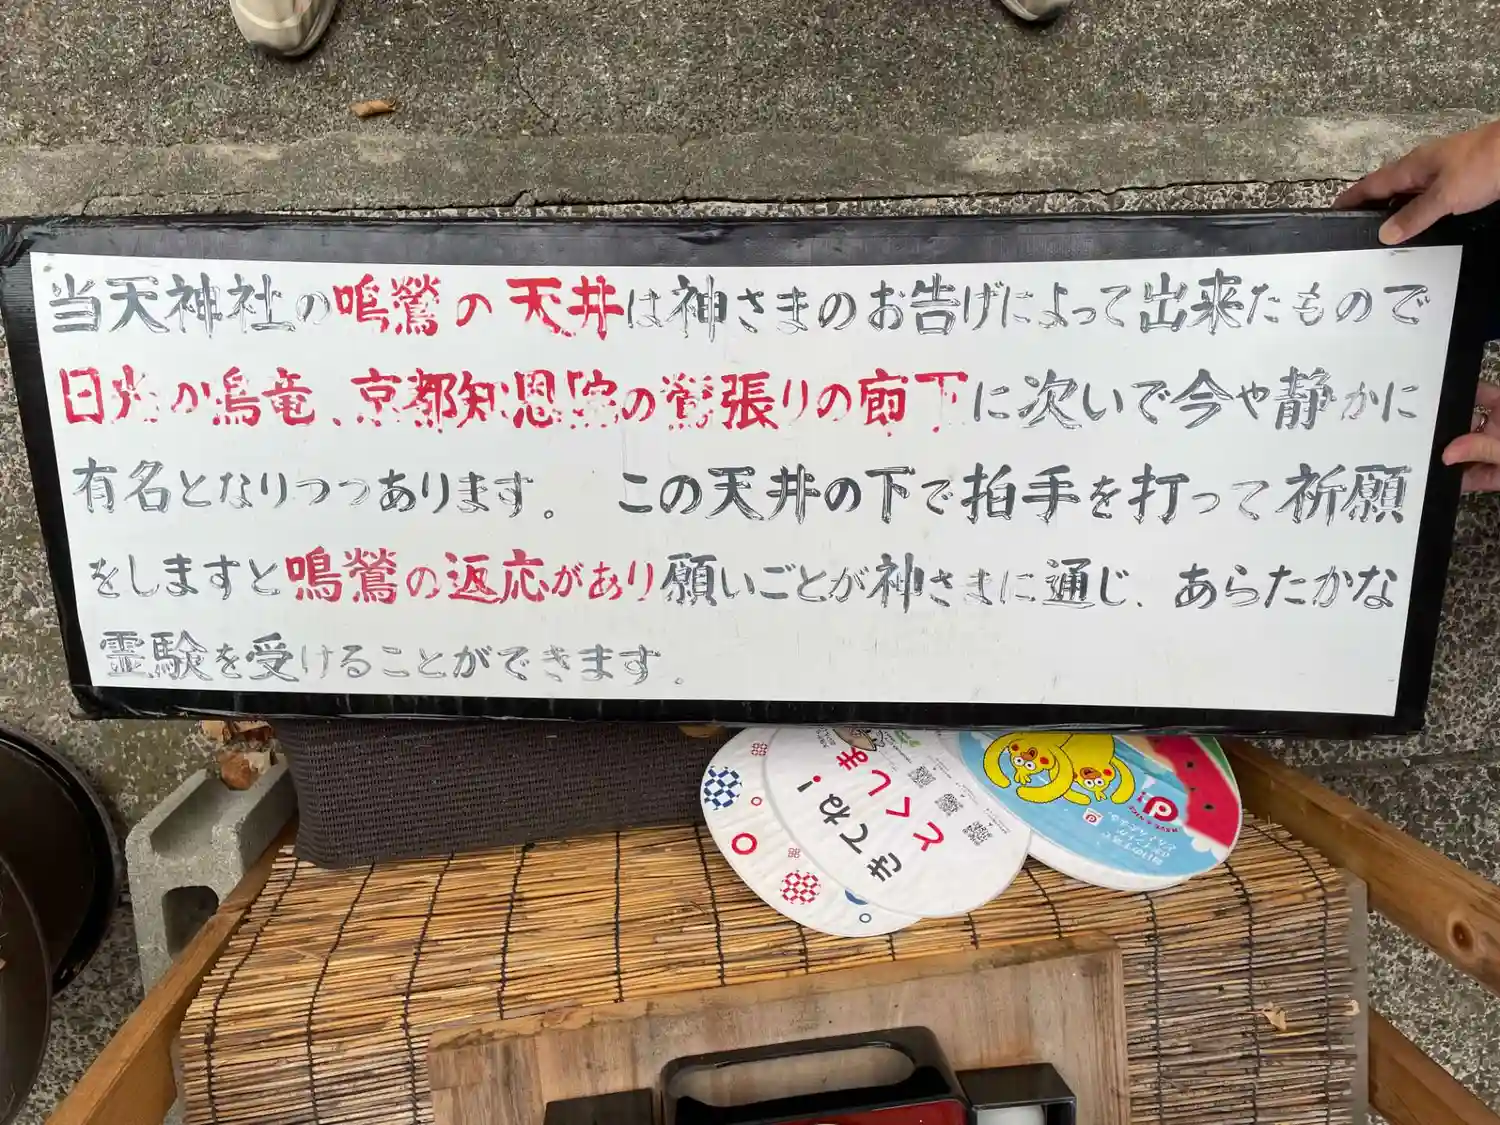 当天神社の鳴鶯の天井は神さまのお告げによって出来たもので
日光の鳴竜、京都知恩院の鶯張りの廊下に次いで今や静かに
有名となりつつあります。 この天井の下で拍手を打って祈願
をしますと鳴鶯の返応があり願いごとが神さまに通じ、あらたかな
霊験を受けることができます。
としくしま
きてね!